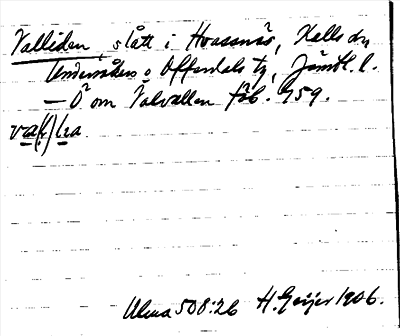 Valliden, slått i Hvassnäs, Kalls sn,
Undersåkers o Offerdals tg, Jämtl. l.
— Ö om Valvallen fäb. G59.
va(l)lɩa
Ulma 508:26 H. Geijer 1906.